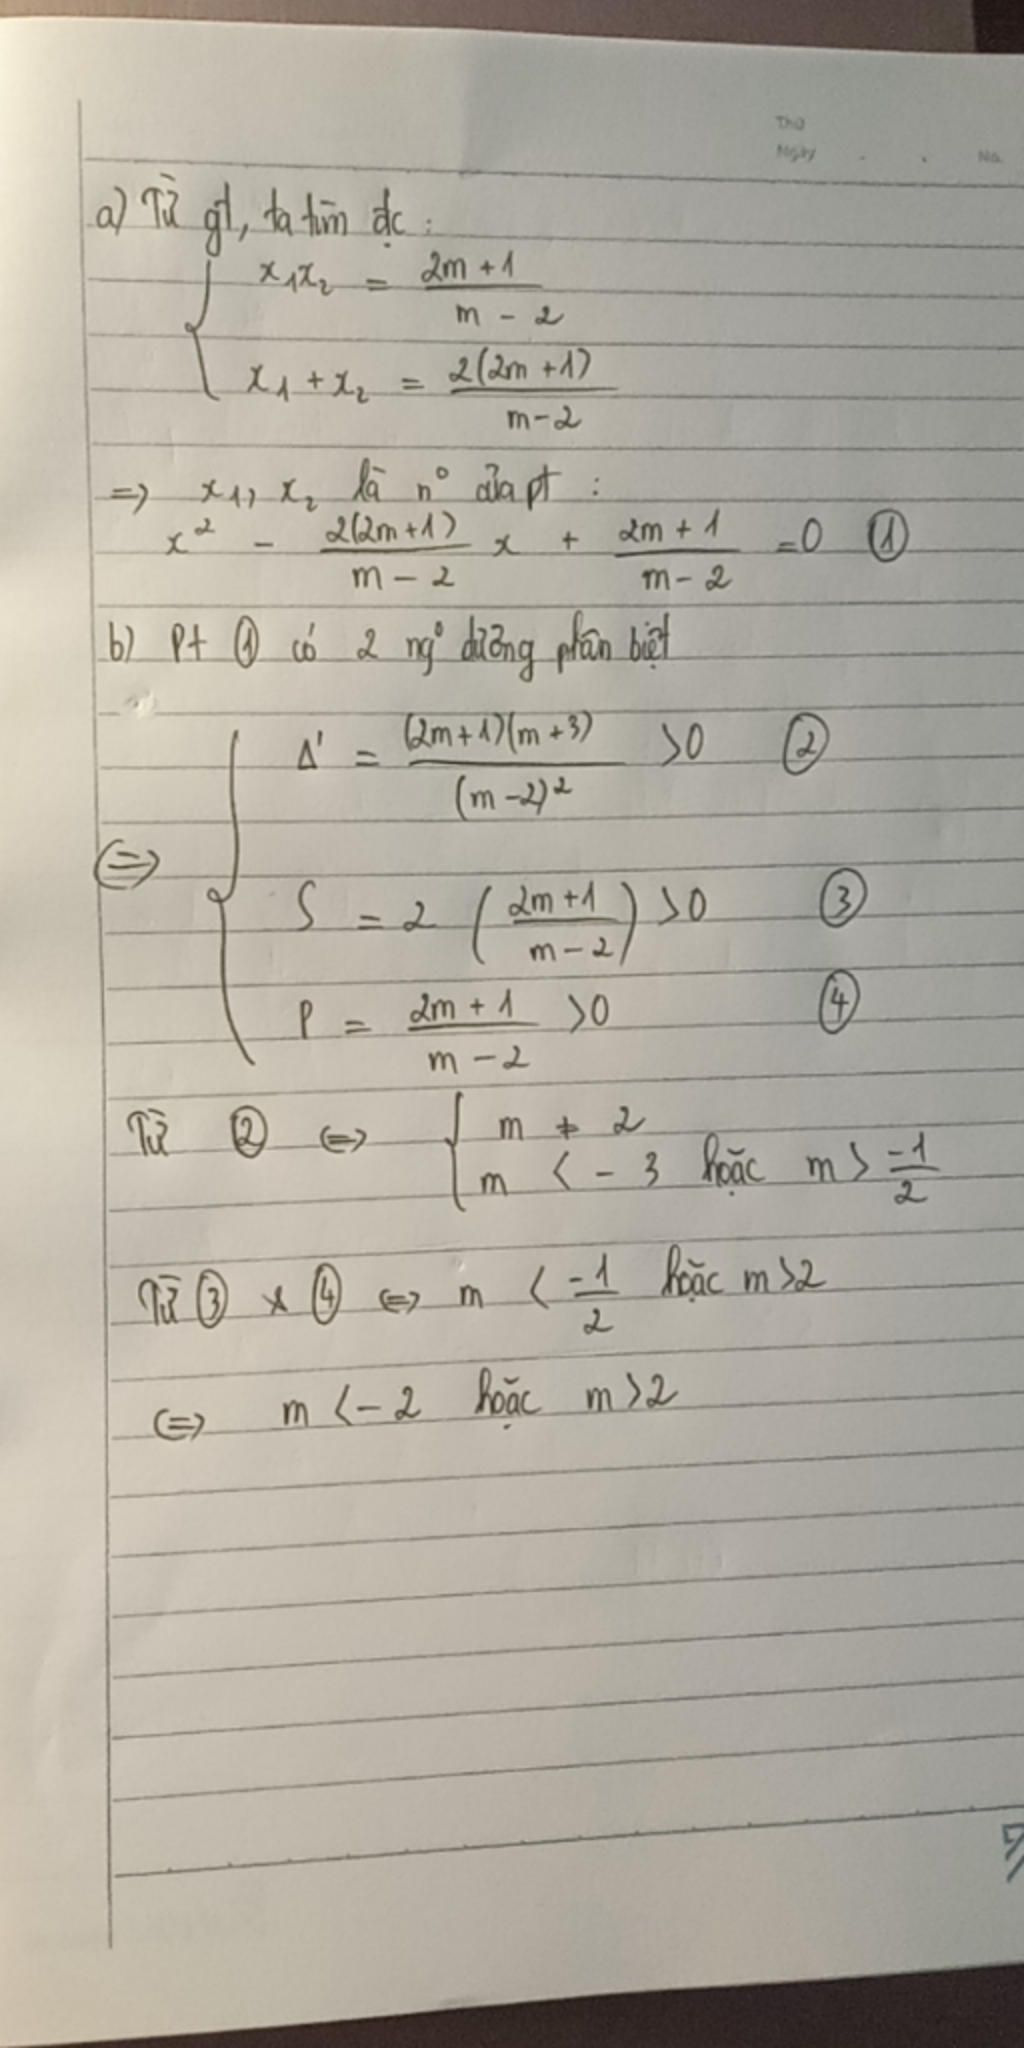 Thứ
Ngày . . No.
a) Từ gt, ta tìm đc :
x₁x₂ = (2m + 1)/(m - 2)
x₁ + x₂ = 2(2m + 1)/(m - 2)
=> x₁, x₂ là n° của pt :
x² - 2(2m+1)/(m - 2) x + (2m + 1)/(m - 2) = 0 ①
b) Pt ① có 2 ng° dương phân biệt
Δ' = (2m+1)(m+3)/(m-2)² > 0 ②
<=>
S = 2 ((2m+1)/(m-2)) > 0 ③
P = (2m + 1)/(m - 2) > 0 ④
Từ ② <=> m ≠ 2
m < - 3 hoặc m > -1/2
Từ ③ & ④ <=> m < -1/2 hoặc m > 2
<=> m < - 2 hoặc m > 2